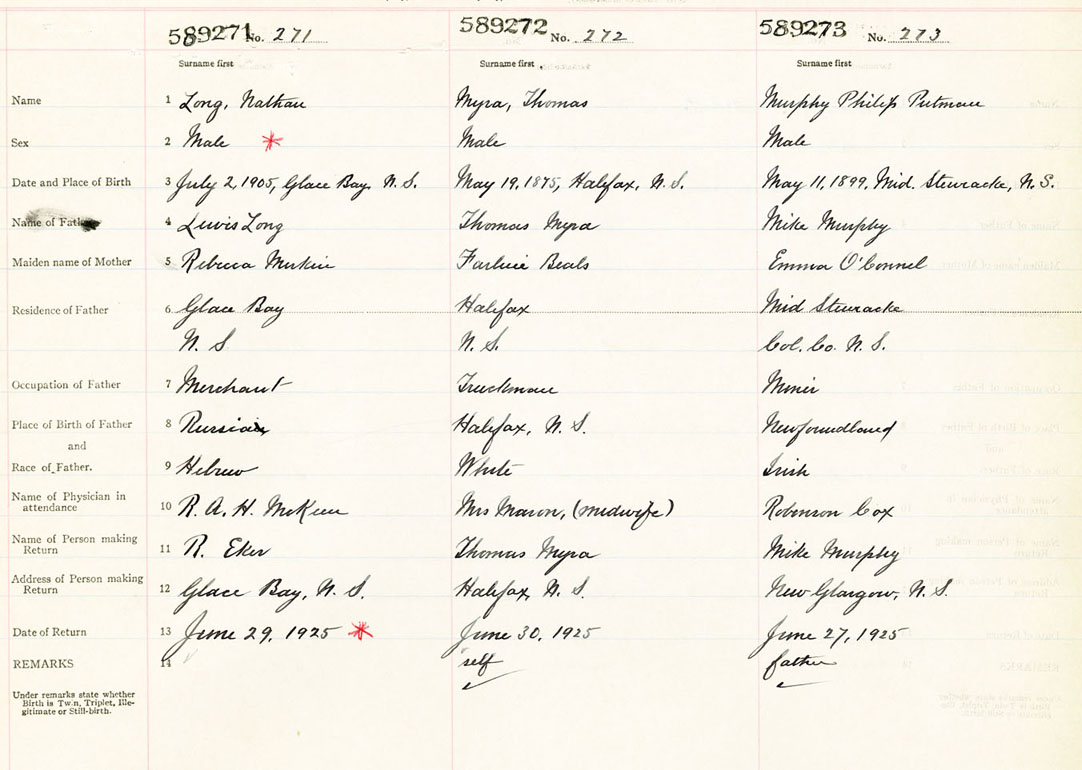 589271 No. 271 589272 No. 272 589273 No. 273
Surname first Surname first Surname first
Name 1 Long, Nathan Myra, Thomas Murphy Philip Putman
Sex 2 Male * Male Male
Date and Place of Birth 3 July 2, 1905, Glace Bay, N. S. May 19, 1875, Halifax, N. S. May 11, 1899, Mid. Stewiacke, N. S.
Name of Father 4 Lewis Long Thomas Myra Mike Murphy
Maiden name of Mother 5 Rebecca Beals Emma O'Connel
Residence of Father 6 Glace Bay Halifax Mid Stewiacke
N. S N. S. Col. Co. N. S.
Occupation of Father 7 Merchant Truckman Miner
Place of Birth of Father 8 Russian Halifax, N. S. Newfoundland
and
Race of Father. 9 Hebrew White Irish
Name of Physician in
attendance 10 R. A. H. McKeen Mrs Mason, (midwife) Robinson Cox
Name of Person making
Return 11 R. Eker Thomas Myra Mike Murphy
Address of Person making
Return 12 Glace Bay, N. S. Halifax, N. S. New Glasgow, N. S.
Date of Return 13 June 29, 1925 * June 30, 1925 June 27, 1925
REMARKS 14 self father
Under remarks state whether
Birth is Twin, Triplet, Ille-
gitimate or Still-birth.